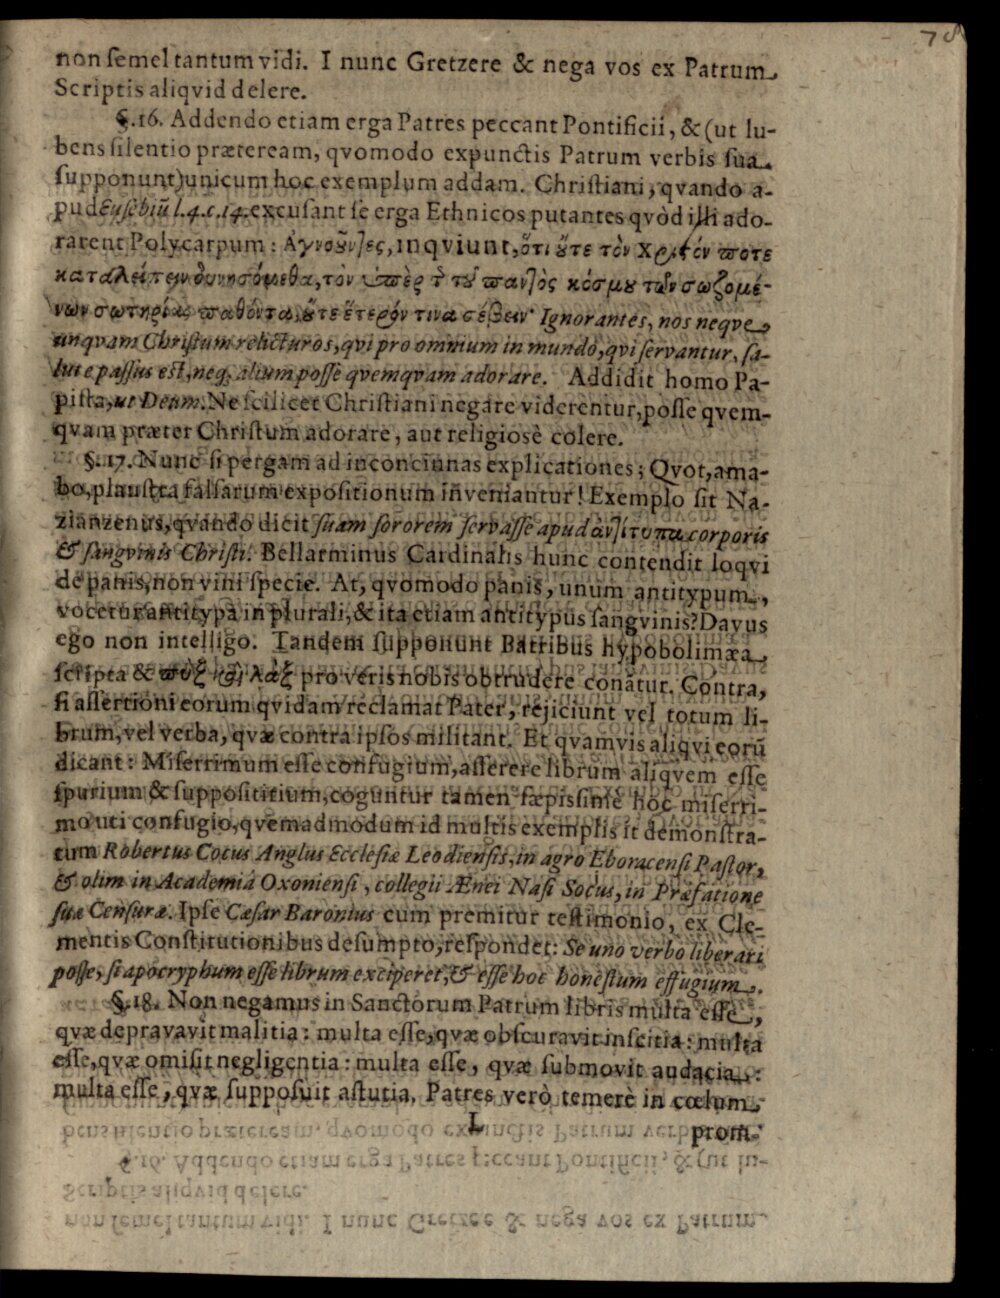 78
non ſemel tantum vidi. I nunc Gretzere & nega vos ex Patrum
Scriptis aliqvid delere.
§.16. Addendo etiam erga Patres peccant Pontificii, & (ut lu-
bens ſilentio præteream, qvomodo expunctis Patrum verbis ſua
ſupponunt) unicum hoc exemplum addam. Chriſtiani, qvando a-
pud Euſebiũ l.4.c.14. excuſant ſe erga Ethnicos putantes qvòd illi ado-
rarent Polycarpum: Ἀγνοοῦντες, inqviunt, ὅτι οὔτε τὸν Χριστόν ποτε
καταλείπειν δυνησόμεθα, τὸν ὑπὲρ τ τοῦ παντὸς κόσμου τῶν σωζομέ-
νων σωτηρίας παθόντα, οὔτε ἕτερόν τινα σέβειν· Ignorantes, nos neqve
unqvam Chriſtum relicturos, qvi pro omnium in mundo, qvi ſervantur, ſa-
lute paſſus eſt, neq; alium poſſe qvemqvam adorare. Addidit homo Pa-
piſta, ut Deum. Ne ſcilicet Chriſtiani negare viderentur, poſſe qvem-
qvam præter Chriſtum adorare, aut religiosè colere.
§.17. Nunc ſi pergam ad inconcinnas explicationes; Qvot, ama-
bo, plauſtra falſarum expoſitionum inveniantur! Exemplo ſit Na-
zianzenus, qvando dicit ſuam ſororem ſervaſſe apud ἀντίτυπα corporis
& ſangvinis Chriſti. Bellarminus Cardinalis hunc contendit loqvi
de panis, non vini ſpecie. At, qvomodo panis, unum antitypum,
vocetur antitypa in plurali, & ita etiam antitypus ſangvinis? Davus
ego non intelligo. Tandem ſupponunt Patribus hypobolimæa
ſcripta & πὺξ καὶ λὰξ pro veris nobis obtrudere conãtur. Contra,
ſi aſſertioni eorum qvidam reclamat Pater, rejiciunt vel totum li-
brum, vel verba, qvæ contra ipſos militant. Et qvamvis aliqvi eorũ
dicant: Miſerrimum eſſe confugium, aſſerere librum aliqvem eſſe
ſpurium & ſuppoſititium, coguntur tamen ſæpiſſimè hoc miſerri-
mo uti confugio, qvemadmodum id multis exemplis it demonſtra-
tum Robertus Cocus Anglus Eccleſiæ Leodienſis, in agro Eboracenſi Paſtor,
& olim in Academiâ Oxonienſi, collegii Ænei Naſi Socus, in Præfatione
ſuæ Cenſuræ. Ipſe Cæſar Baronius cum premitur teſtimonio, ex Cle-
mentis Conſtitutionibus deſumpto, reſpondet: Se uno verbo liberari
poſſe, ſi apocryphum eſſe librum exciperet, & eſſe hoc honeſtum effugium.
§.18. Non negamus in Sanctorum Patrum libris multa eſſe,
qvæ depravavit malitia: multa eſſe, qvæ obſcuravit inſcitia: multa
eſſe, qvæ omiſit negligentia: multa eſſe, qvæ ſubmovit audacia:
multa eſſe, qvæ ſuppoſuit aſtutia. Patres verò temerè in cœlum
L
prom-